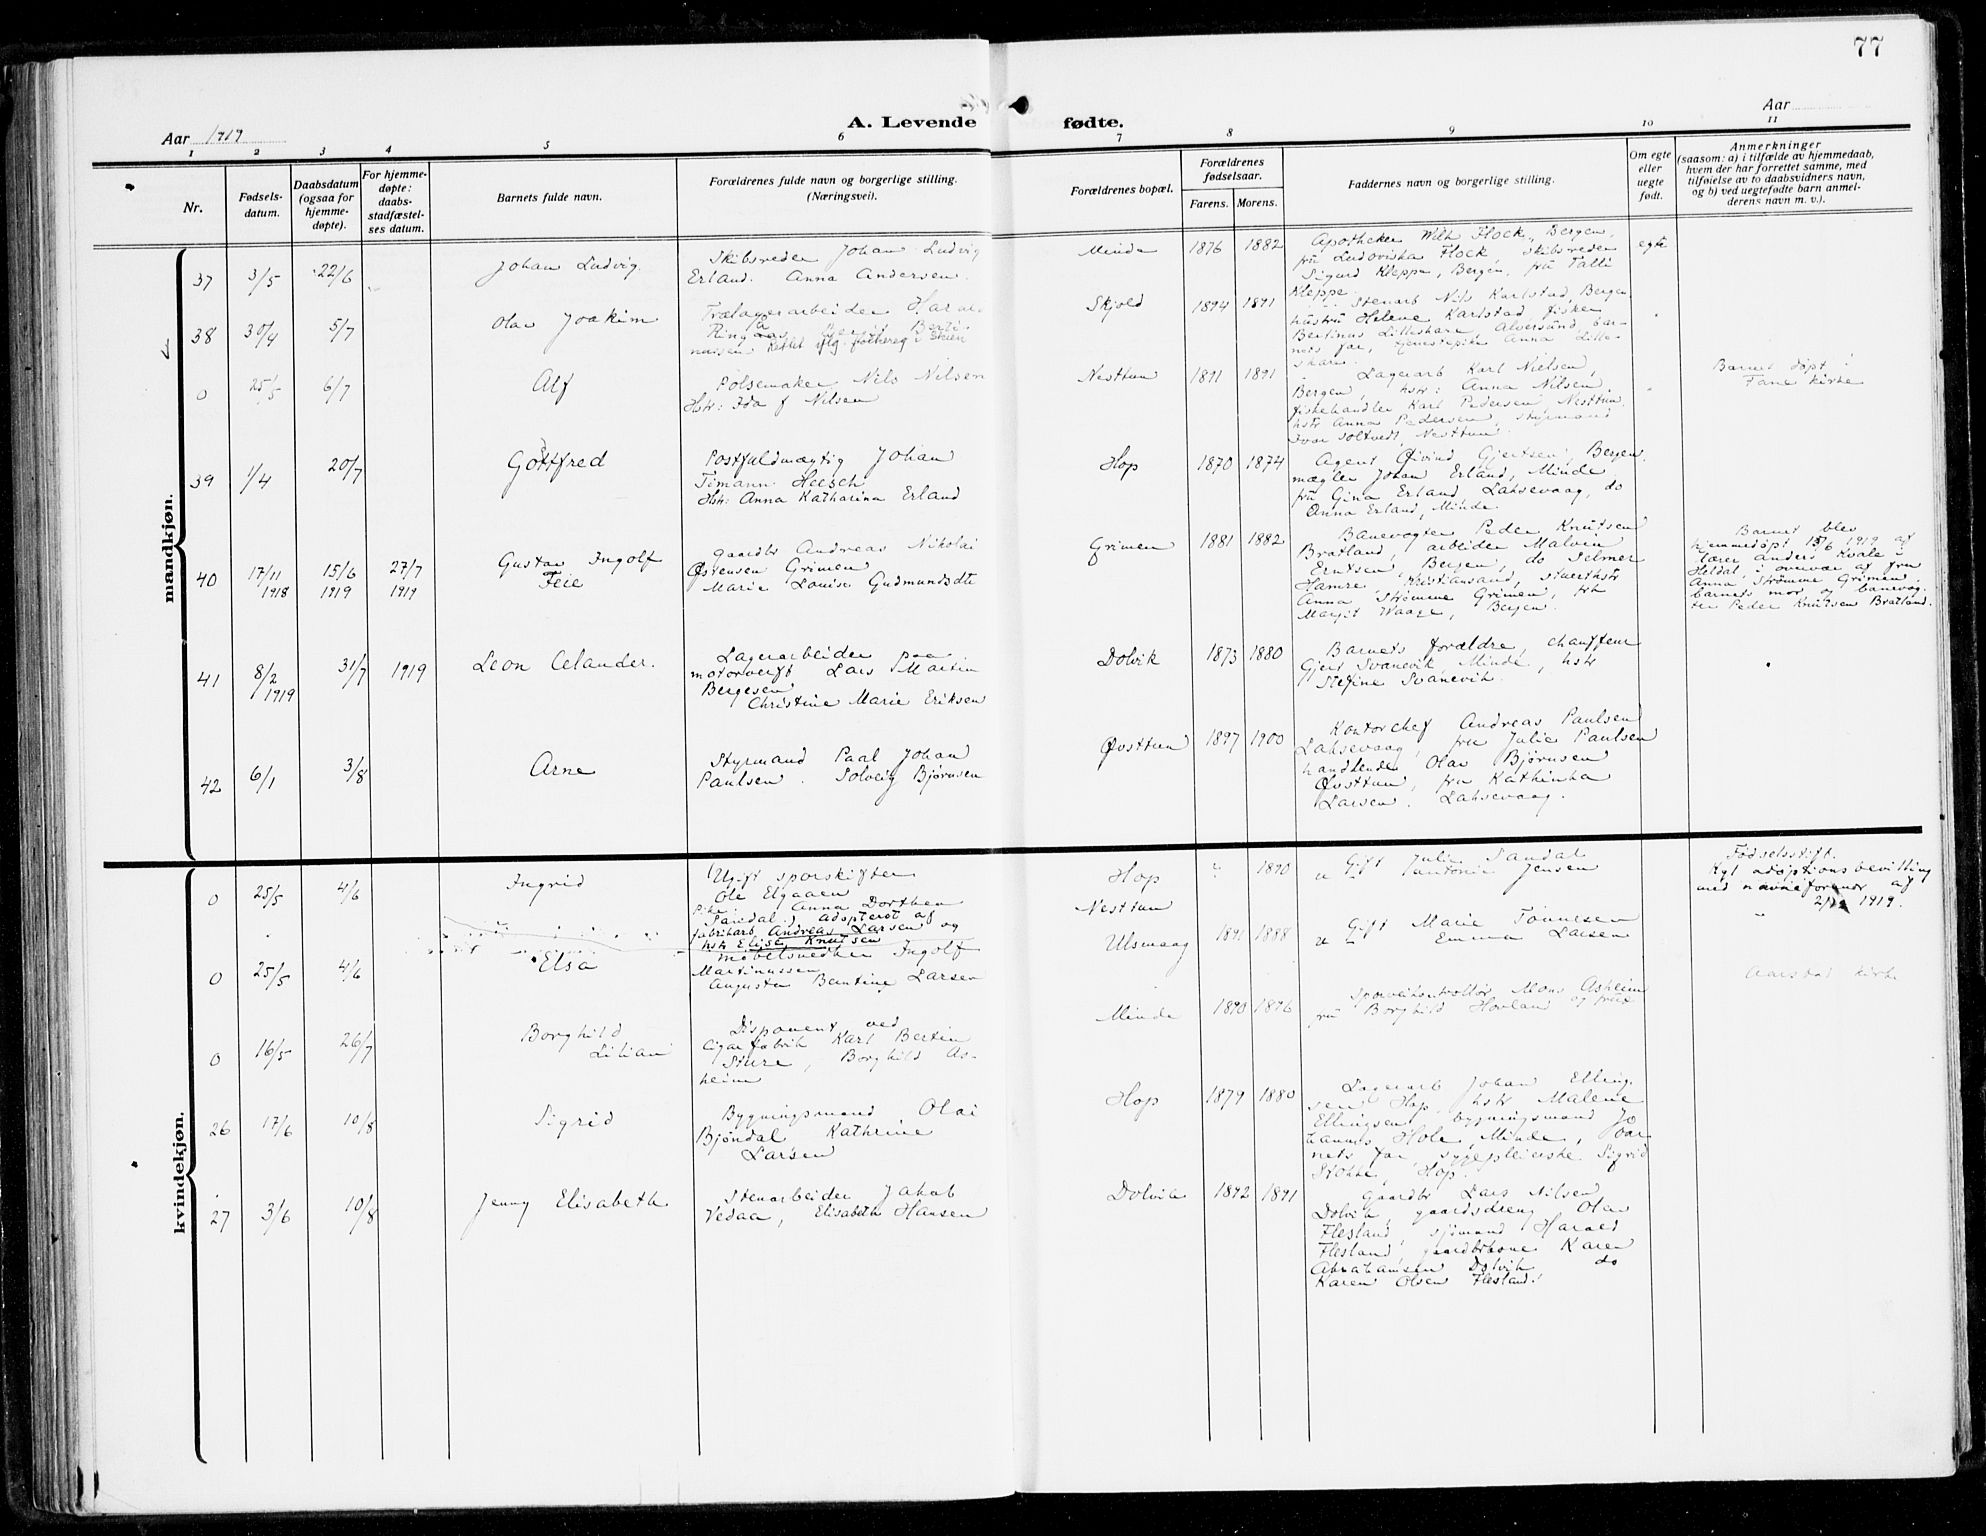 77
Aar 1919
A. Levende fødte.
Aar
1 2 3 4 5 6 7 8 9 10 11
Nr.
Fødsels-
datum.
Daabsdatum
(ogsaa for
hjemme-
døpte).
For hjemme-
døpte:
daabs-
stadfæstel-
ses datum.
Barnets fulde navn.
Forældrenes fulde navn og borgerlige stilling.
(Næringsvei).
Forældrenes bopæl.
Forældrenes
fødselsaar.
Farens. Morens.
Faddernes navn og borgerlige stilling.
Om egte
eller
uegte
født.
Anmerkninger
(saasom: a) i tilfælde av hjemmedaab,
hvem der har forrettet samme, med
tilføielse av to daabsvidners navn,
og b) ved uegtefødte barn anmel-
derens navn m. v.).
mandkjøn.
37 3/5 22/6 Johan Ludvig
Skibsreder Johan Ludvig
Erland. Anna Andersen.
Minde 1876 1882
Apotheker Wilh Flock, Bergen,
fru Ludovikka Flock, Skibsreder
Sigurd Kleppe, Bergen, fru Talli
Kleppe.
egte
38 30/4 5/7 Olav Joakim
Trælagerarbeider Harald
Skjold 1894 1891
Stenarb Nils Karlstad, Bergen
hustru Helene Karlstad, fisker
Bertinus Lilleskare, Alversund, bar-
nets far, tjenestepike Anna Lille-
skare.
0 25/5 6/7 Alf
Pølsemaker Nils Nilsen
Hstr: Ida f Nilsen
Nesttun 1891 1891
Lagerarb Karl Nielsen,
Bergen, hstr: Anna Nilsen,
fiskehandler Karl Pedersen, Nesttun.
hstr Anna Pedersen, styrmand
Ivar Soltvedt, Nesttun.
Barnet døpt i
Fane kirke
39 1/4 20/7 Gottfred
Postfuldmægtig Johan
Timann Heesch
Hstr: Anna Katharina Erland
Hop 1870 1874
Agent Øivind Gjertsen, Bergen,
mægler Johan Erland, Minde
fru Gina Erland, Laksevaag, do
Anna Erland, Minde.
40 17/11 1918 15/6 1919 27/7 1919 Gustav Ingolf
Feie
gaardbr Andreas Nikolai
Østensen Grimen
Marie Louise Gudmundsdtr
Grimen 1881 1882
Banevogter Peder Knutsen
Bratland, arbeider Malvin
Erntsen, Bergen, do Selmer
Hamre, Kristiansand, stuerthstr
Anna Strømme Grimen, frk
Margit Waage, Bergen.
Barnet blev
hjemmedøpt 15/6 1919 af
lærer Anders Kvale i
Heldal, i overvær af fru
Anna Strømme Grimen,
barnets mor og banevog-
ter Peder Knutsen Bratland.
41 8/2 1919 31/7 1919 Leon Celander.
Lagerarbeider paa
motorverft Lars Martin
Bergesen
Christine Marie Eriksen
Dolvik 1873 1880
Barnets forældre, chauffeur
Gjert Svanevik, Minde, hstr
Stefine Svanevik.
42 6/1 3/8 Arne
Styrmand Paal Johan
Paulsen. Solveig Bjørnsen
Øvsttun 1897 1900
Kontorchef Andreas Paulsen
Laksevaag, fru Julie Paulsen
handlende Olav Bjørnsen
Øvsttun, fru Kathinka
Larsen. Laksevaag.
kvindekjøn.
0 25/5 4/6 Ingrid
(Ugift sporskifter
Ole Elgaaen
Pike Anna Dorthea
Sandal.) Adopteret af
fabrikarb. Andreas Larsen og
hstr Elise Knutsen
Hop
Nesttun " 1890
Gift Julie Sandal
u " Antonie Jensen
Fødselsstift.
Kgl adoptionsbevilling
med navneforandr af
1919.
0 25/5 4/6 Elsa
møbelsnedker Ingolf
Martinussen
Augusta Bentine Larsen
Ulsmaag 1891 1888
Gift Marie Tønnesen
u " Emma Larsen
Aarstad kirke
0 16/5 26/7 Borghild
Lilian
Disponent ved
cigarfabrik Karl Bertin
Sture, Borghild As-
heim
Minde 1890 1896
Sporveiskontrollør Mons Asheim
fru Borghild Hovland og frue
26 17/6 10/8 Sigrid
Bygningsmand Olai
Bjøndal Kathrine
Larsen
Hop 1879 1880
Lagerarb Johan Elling-
sen Hop, hstr Malene
Ellingsen, bygningsmand Jo-
hannes Hole, Minde, bar-
nets far, sygepleierske Sigrid
Stokke, Hop.
27 3/6 10/8 Jenny Elisabeth
Stenarbeider Jakob
Vedaa, Elisabeth Hansen
Dolvik 1892 1891
Gaardbr Lars Nilsen
Dolvik, gaardsdreng Olav
Flesland, sjømand Harald
Flesland, gaardbrkone Karen
Abrahamsen Dolvik do
Karen Olsen Flesland.